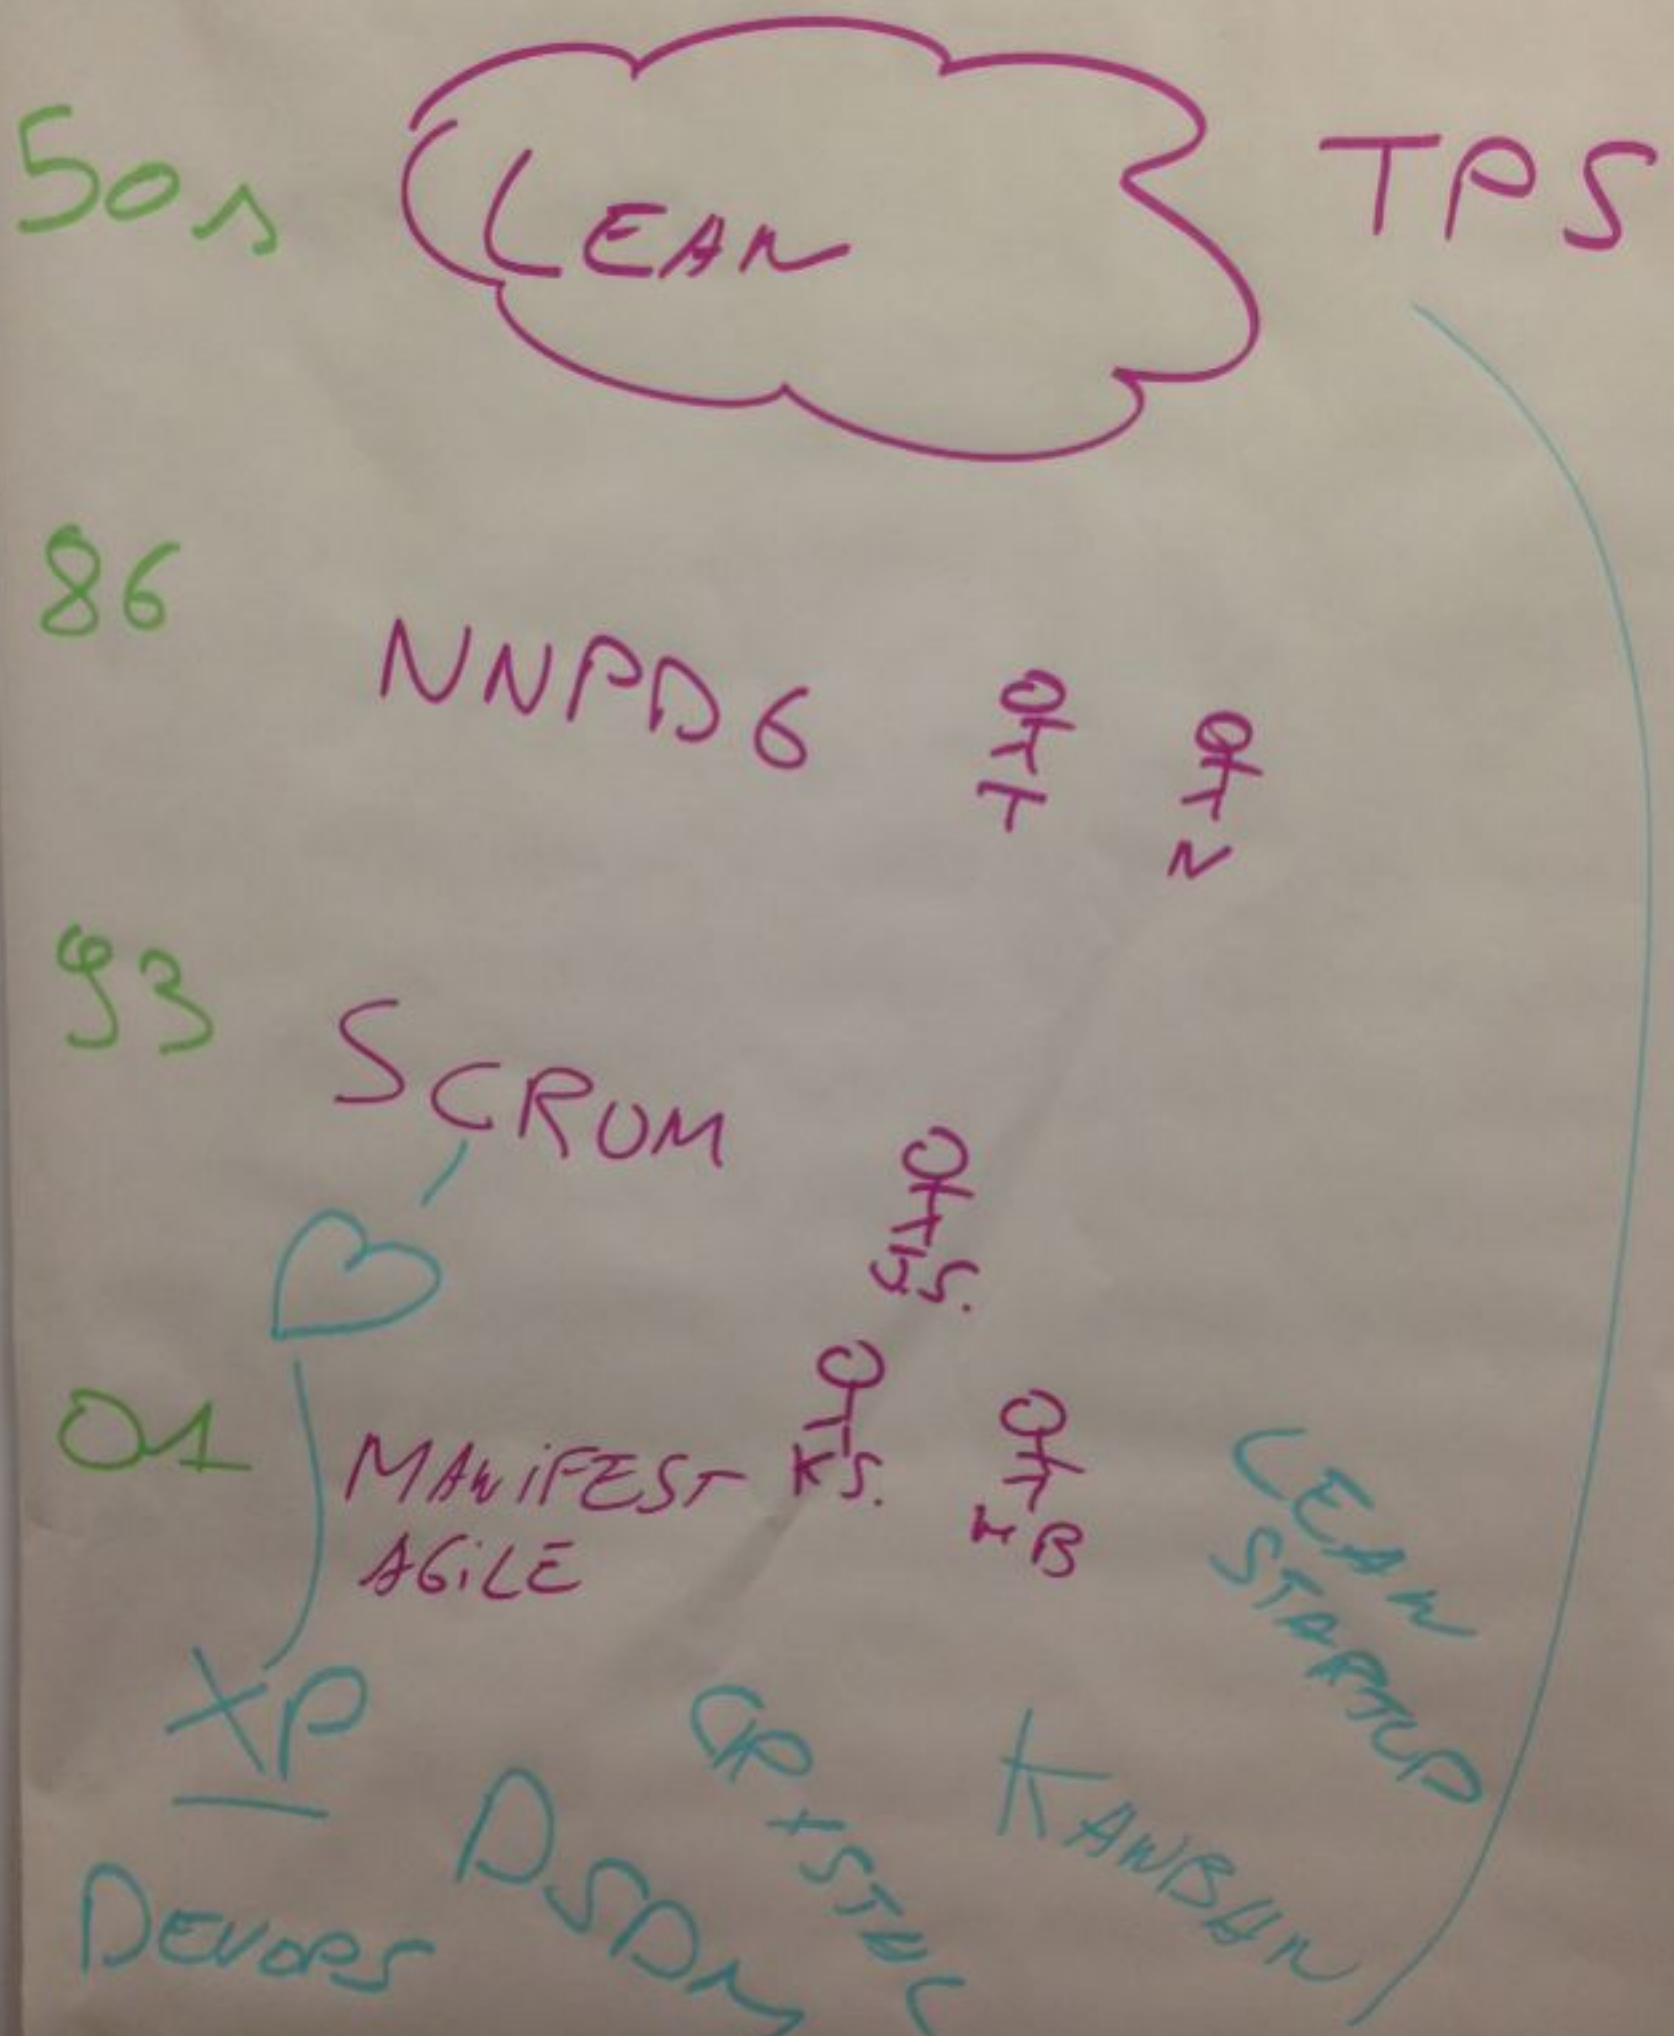 50s LEAN TPS
86 NNPDG
T N
93 SCRUM
J.S.
01 MANIFEST
AGILE
K S.
M B
LEAN
STARTUP
XP
DEVOPS
DSDM
CRYSTAL
KANBAN